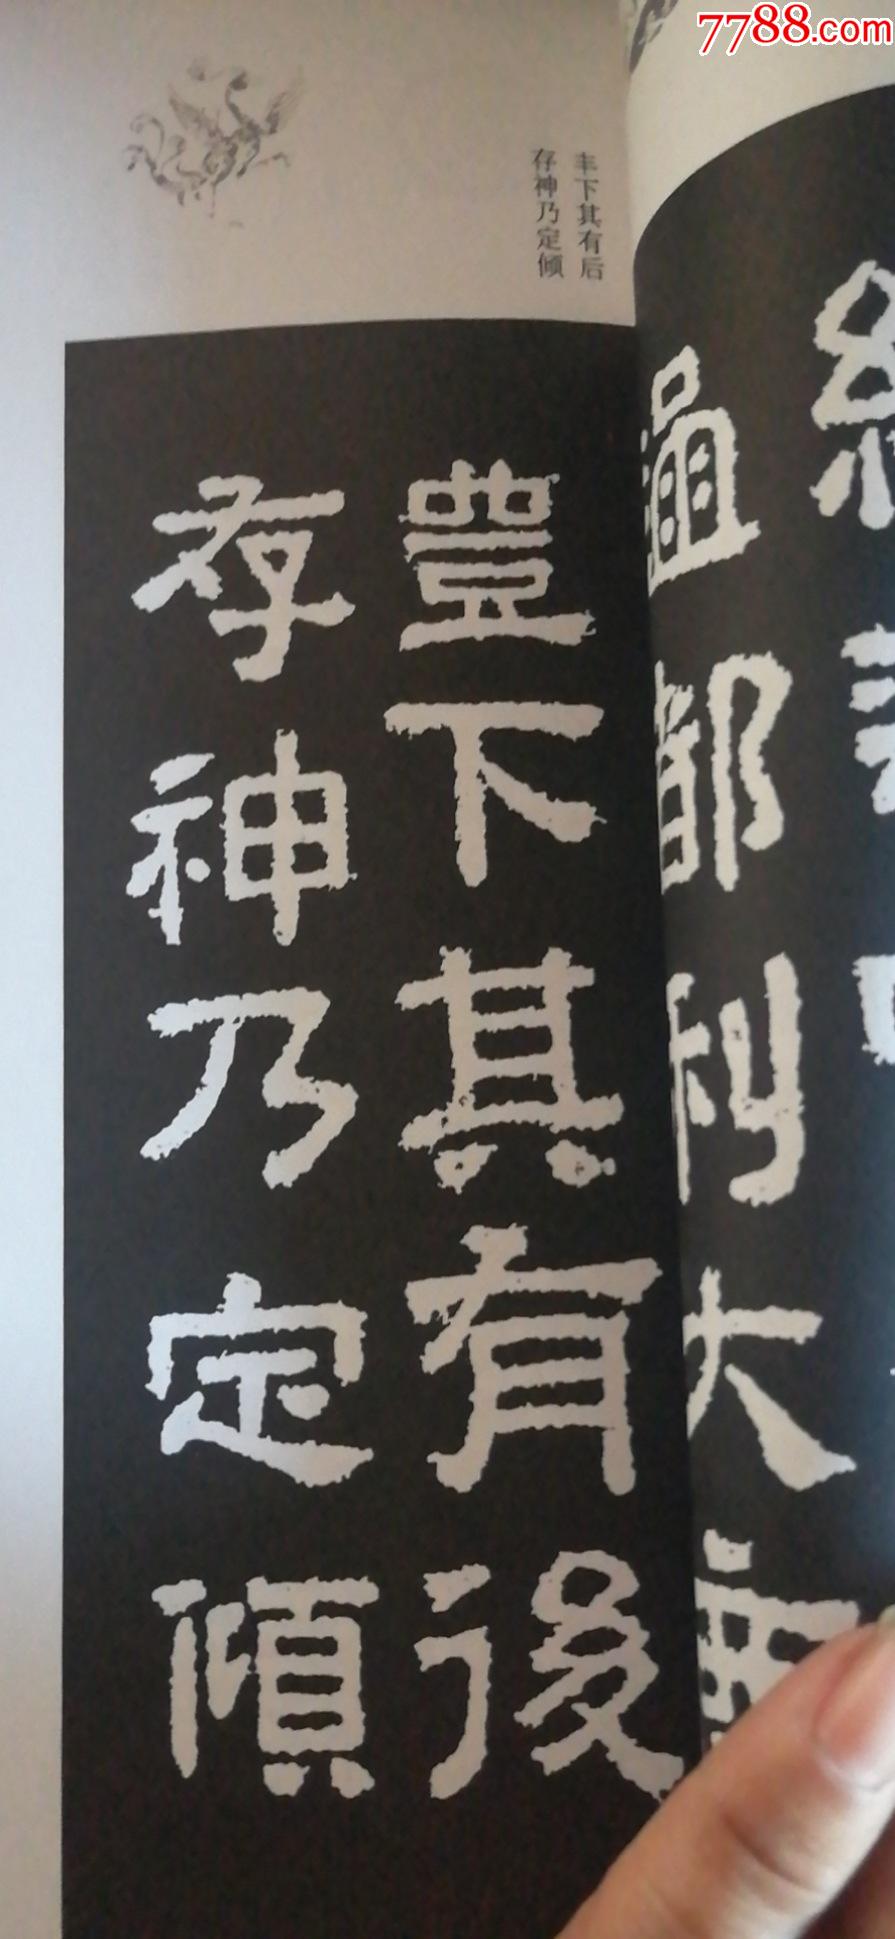 7788.com
丰下其有后
存神乃定倾
豊下其有後
存神乃定傾
温都利大